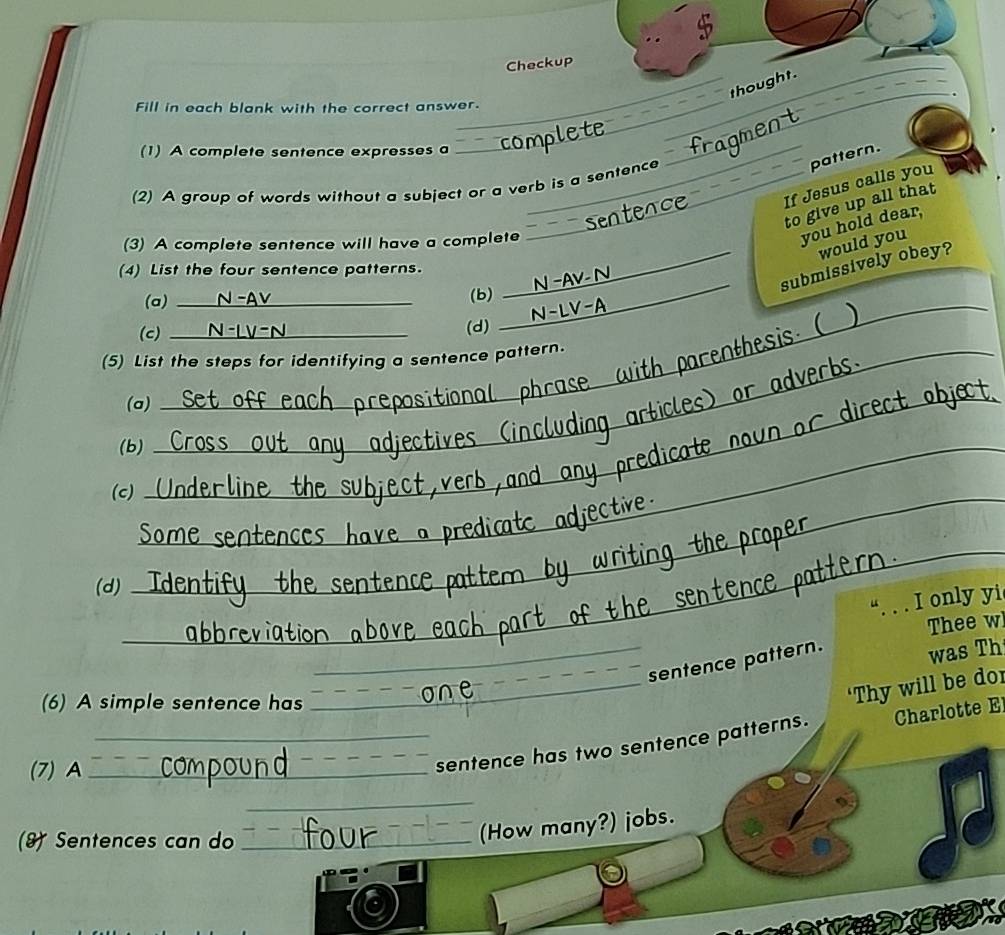 Checkup
Fill in each blank with the correct answer.
(1) A complete sentence expresses a complete thought.
(2) A group of words without a subject or a verb is a sentence fragment.
(3) A complete sentence will have a complete sentence pattern.
(4) List the four sentence patterns.
(a) N-AV (b) N-AV-N
(c) N-LV-N (d) N-LV-A
If Jesus calls you
to give up all that
you hold dear,
would you
submissively obey?
(5) List the steps for identifying a sentence pattern.
(a) Set off each prepositional phrase with parenthesis. ( )
(b) Cross out any adjectives (including articles) or adverbs.
(c) Underline the subject, verb, and any predicate noun or direct object.
Some sentences have a predicate adjective.
(d) Identify the sentence pattern by writing the proper
abbreviation above each part of the sentence pattern.
(6) A simple sentence has one sentence pattern.
(7) A compound sentence has two sentence patterns.
(8) Sentences can do four (How many?) jobs.
". . . I only
Thee
was
'Thy will be
Charlotte